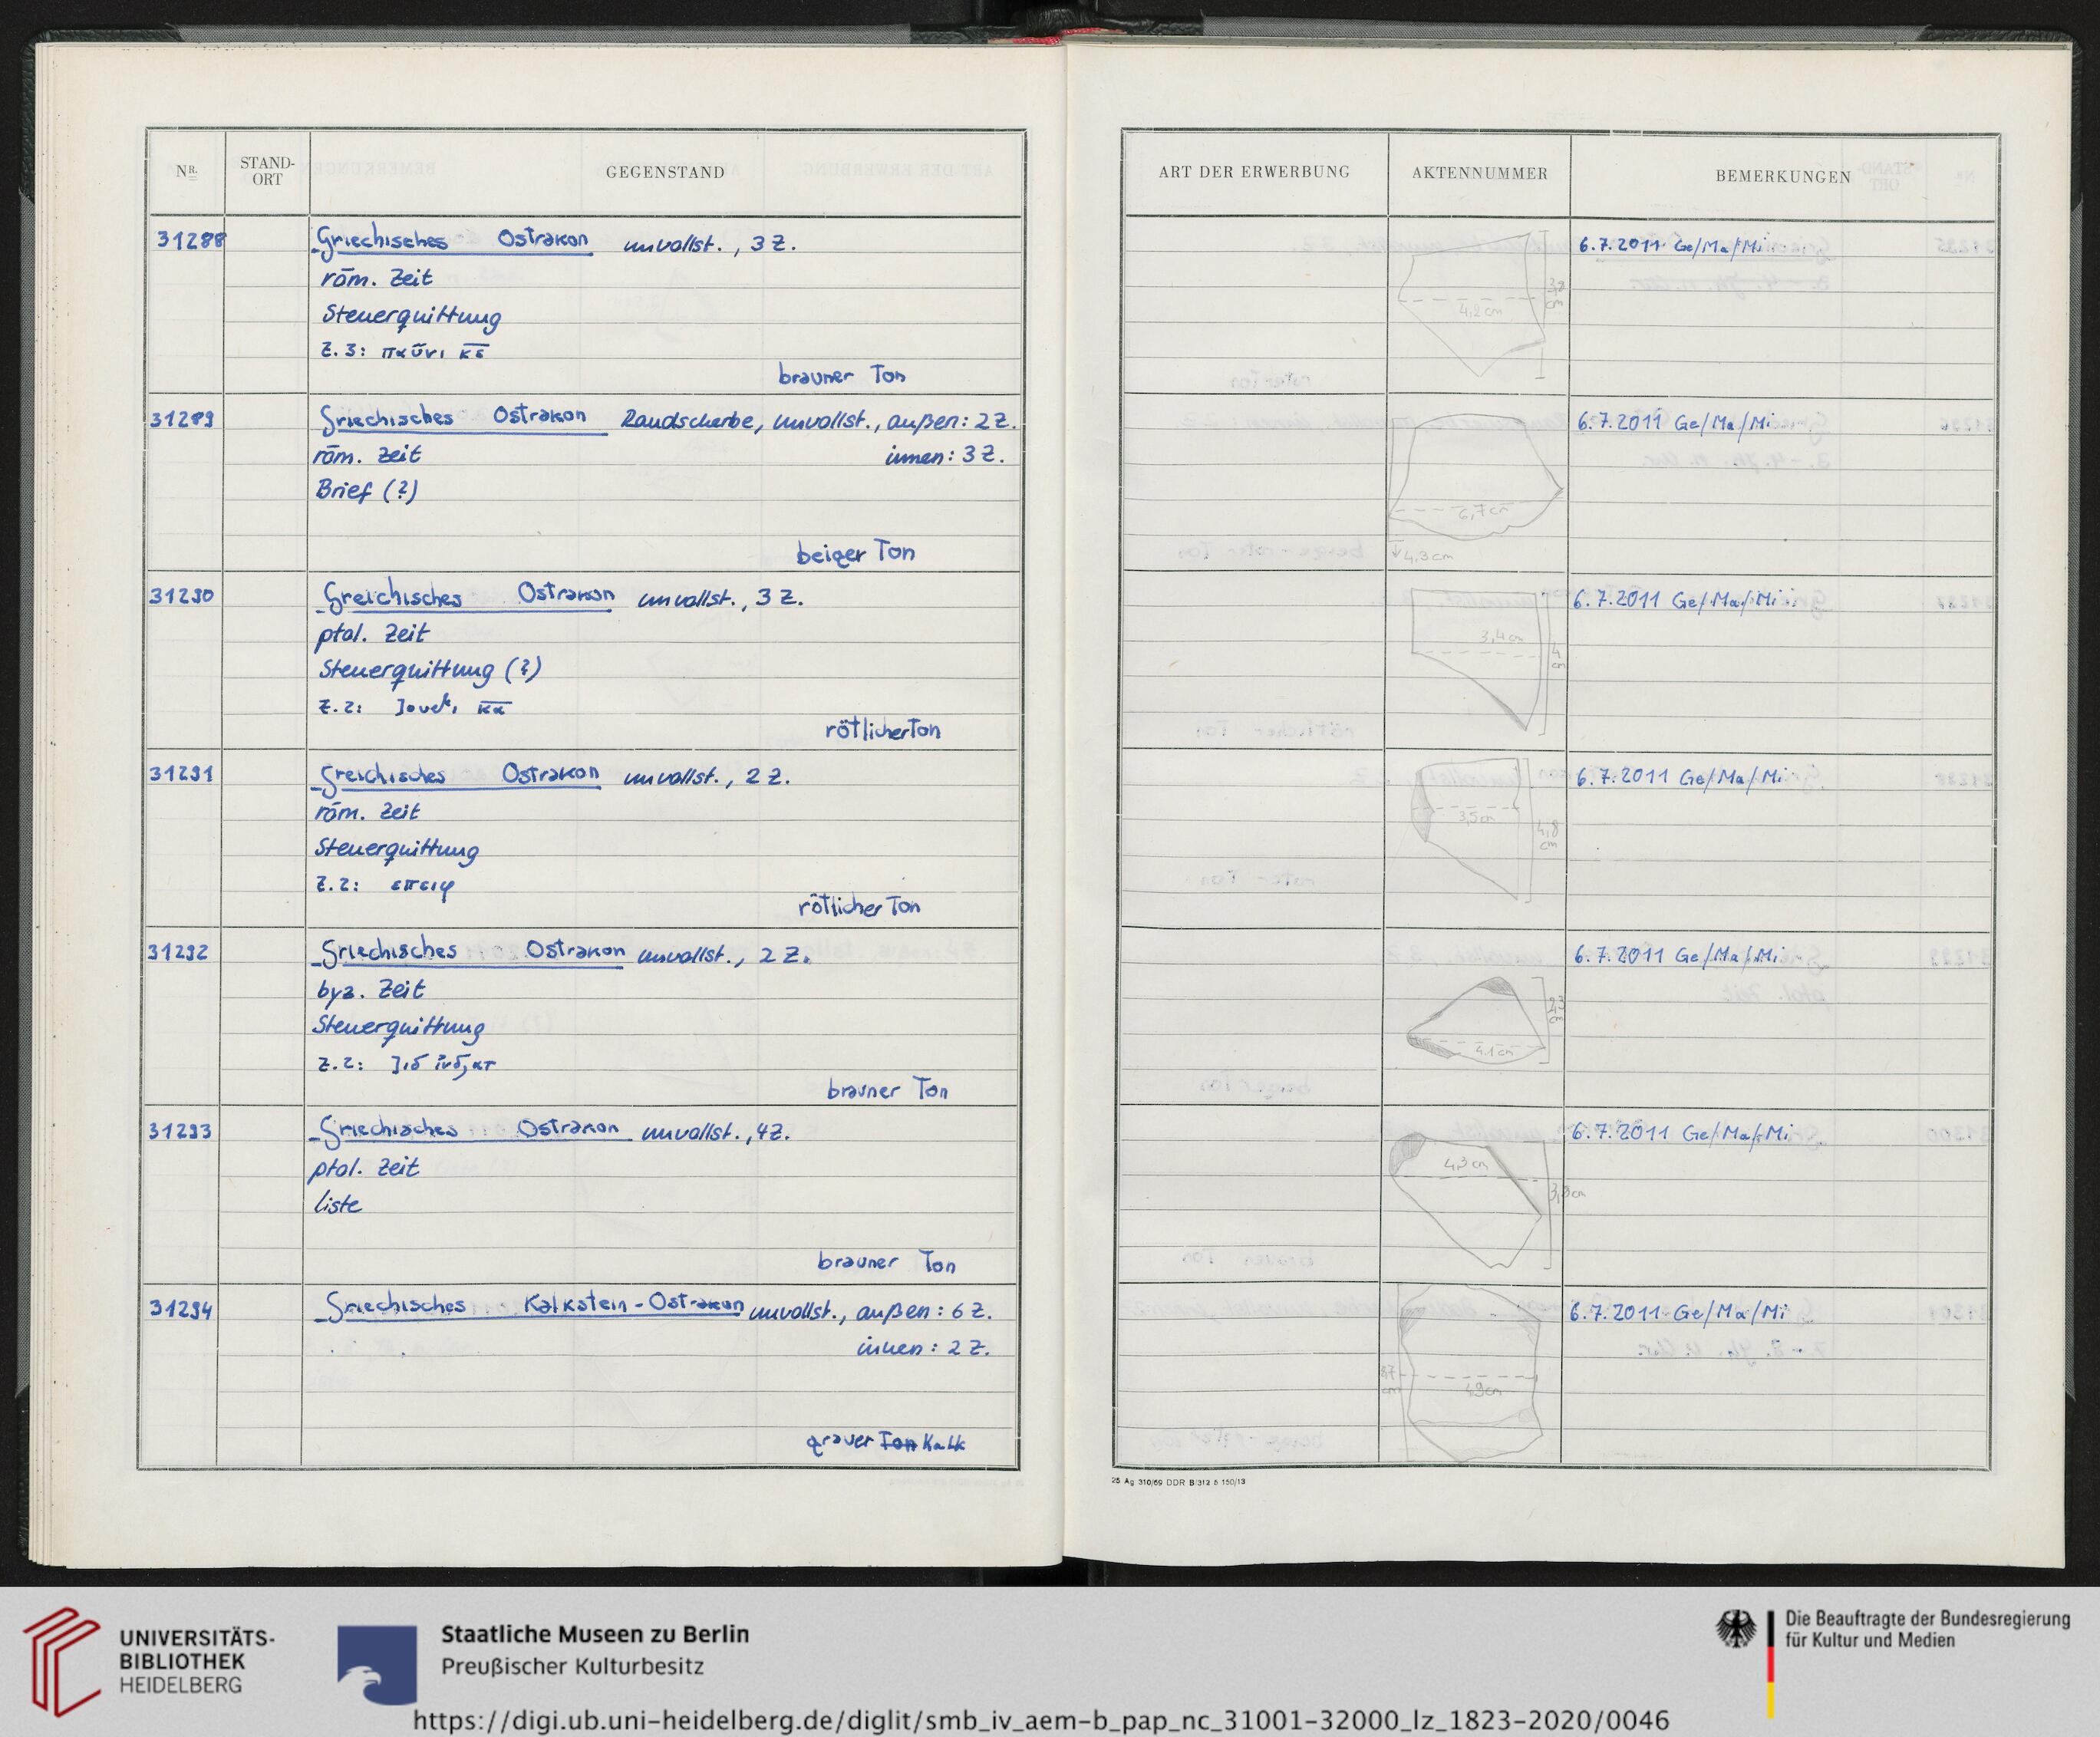 NR.
STAND-
ORT
GEGENSTAND
31288
Griechisches Ostrakon unvollst., 3 Z.
röm. Zeit
Steuerquittung
Z. 3: παῦνι κε
brauner Ton
31289
Griechisches Ostrakon Randscherbe, unvollst., außen: 2 Z.
röm. Zeit innen: 3 Z.
Brief (?)
beiger Ton
31290
Greichisches Ostrakon unvollst., 3 Z.
ptol. Zeit
Steuerquittung (?)
Z. 2: κα
rötlicher Ton
31291
Greichisches Ostrakon unvollst., 2 Z.
röm. Zeit
Steuerquittung
Z. 2: επειφ
rötlicher Ton
31292
Griechisches Ostrakon unvollst., 2 Z.
byz. Zeit
Steuerquittung
Z. 2:
brauner Ton
31293
Griechisches Ostrakon unvollst., 4 Z.
ptol. Zeit
Liste
brauner Ton
31294
Griechisches Kalkstein-Ostrakon unvollst., außen: 6 Z.
innen: 2 Z.
grauer Ton Kalk
ART DER ERWERBUNG
AKTENNUMMER
BEMERKUNGEN
6.7.2011 Ge/Ma/Mi
4,2 cm
cm
6.7.2011 Ge/Ma/Mi
6,7 cm
4,3 cm
6.7.2011 Ge/Ma/Mi
3,4 cm
4
cm
6.7.2011 Ge/Ma/Mi
3,5 cm
4,8
cm
6.7.2011 Ge/Ma/Mi
2,3
cm
4,1 cm
6.7.2011 Ge/Ma/Mi
4,3 cm
6.7.2011 Ge/Ma/Mi
cm
4,9 cm
25 Ag 310/69 DDR B 312 5 150/13
UNIVERSITÄTS-
BIBLIOTHEK
HEIDELBERG
Staatliche Museen zu Berlin
Preußischer Kulturbesitz
Die Beauftragte der Bundesregierung
für Kultur und Medien
https://digi.ub.uni-heidelberg.de/diglit/smb_iv_aem-b_pap_nc_31001-32000_lz_1823-2020/0046